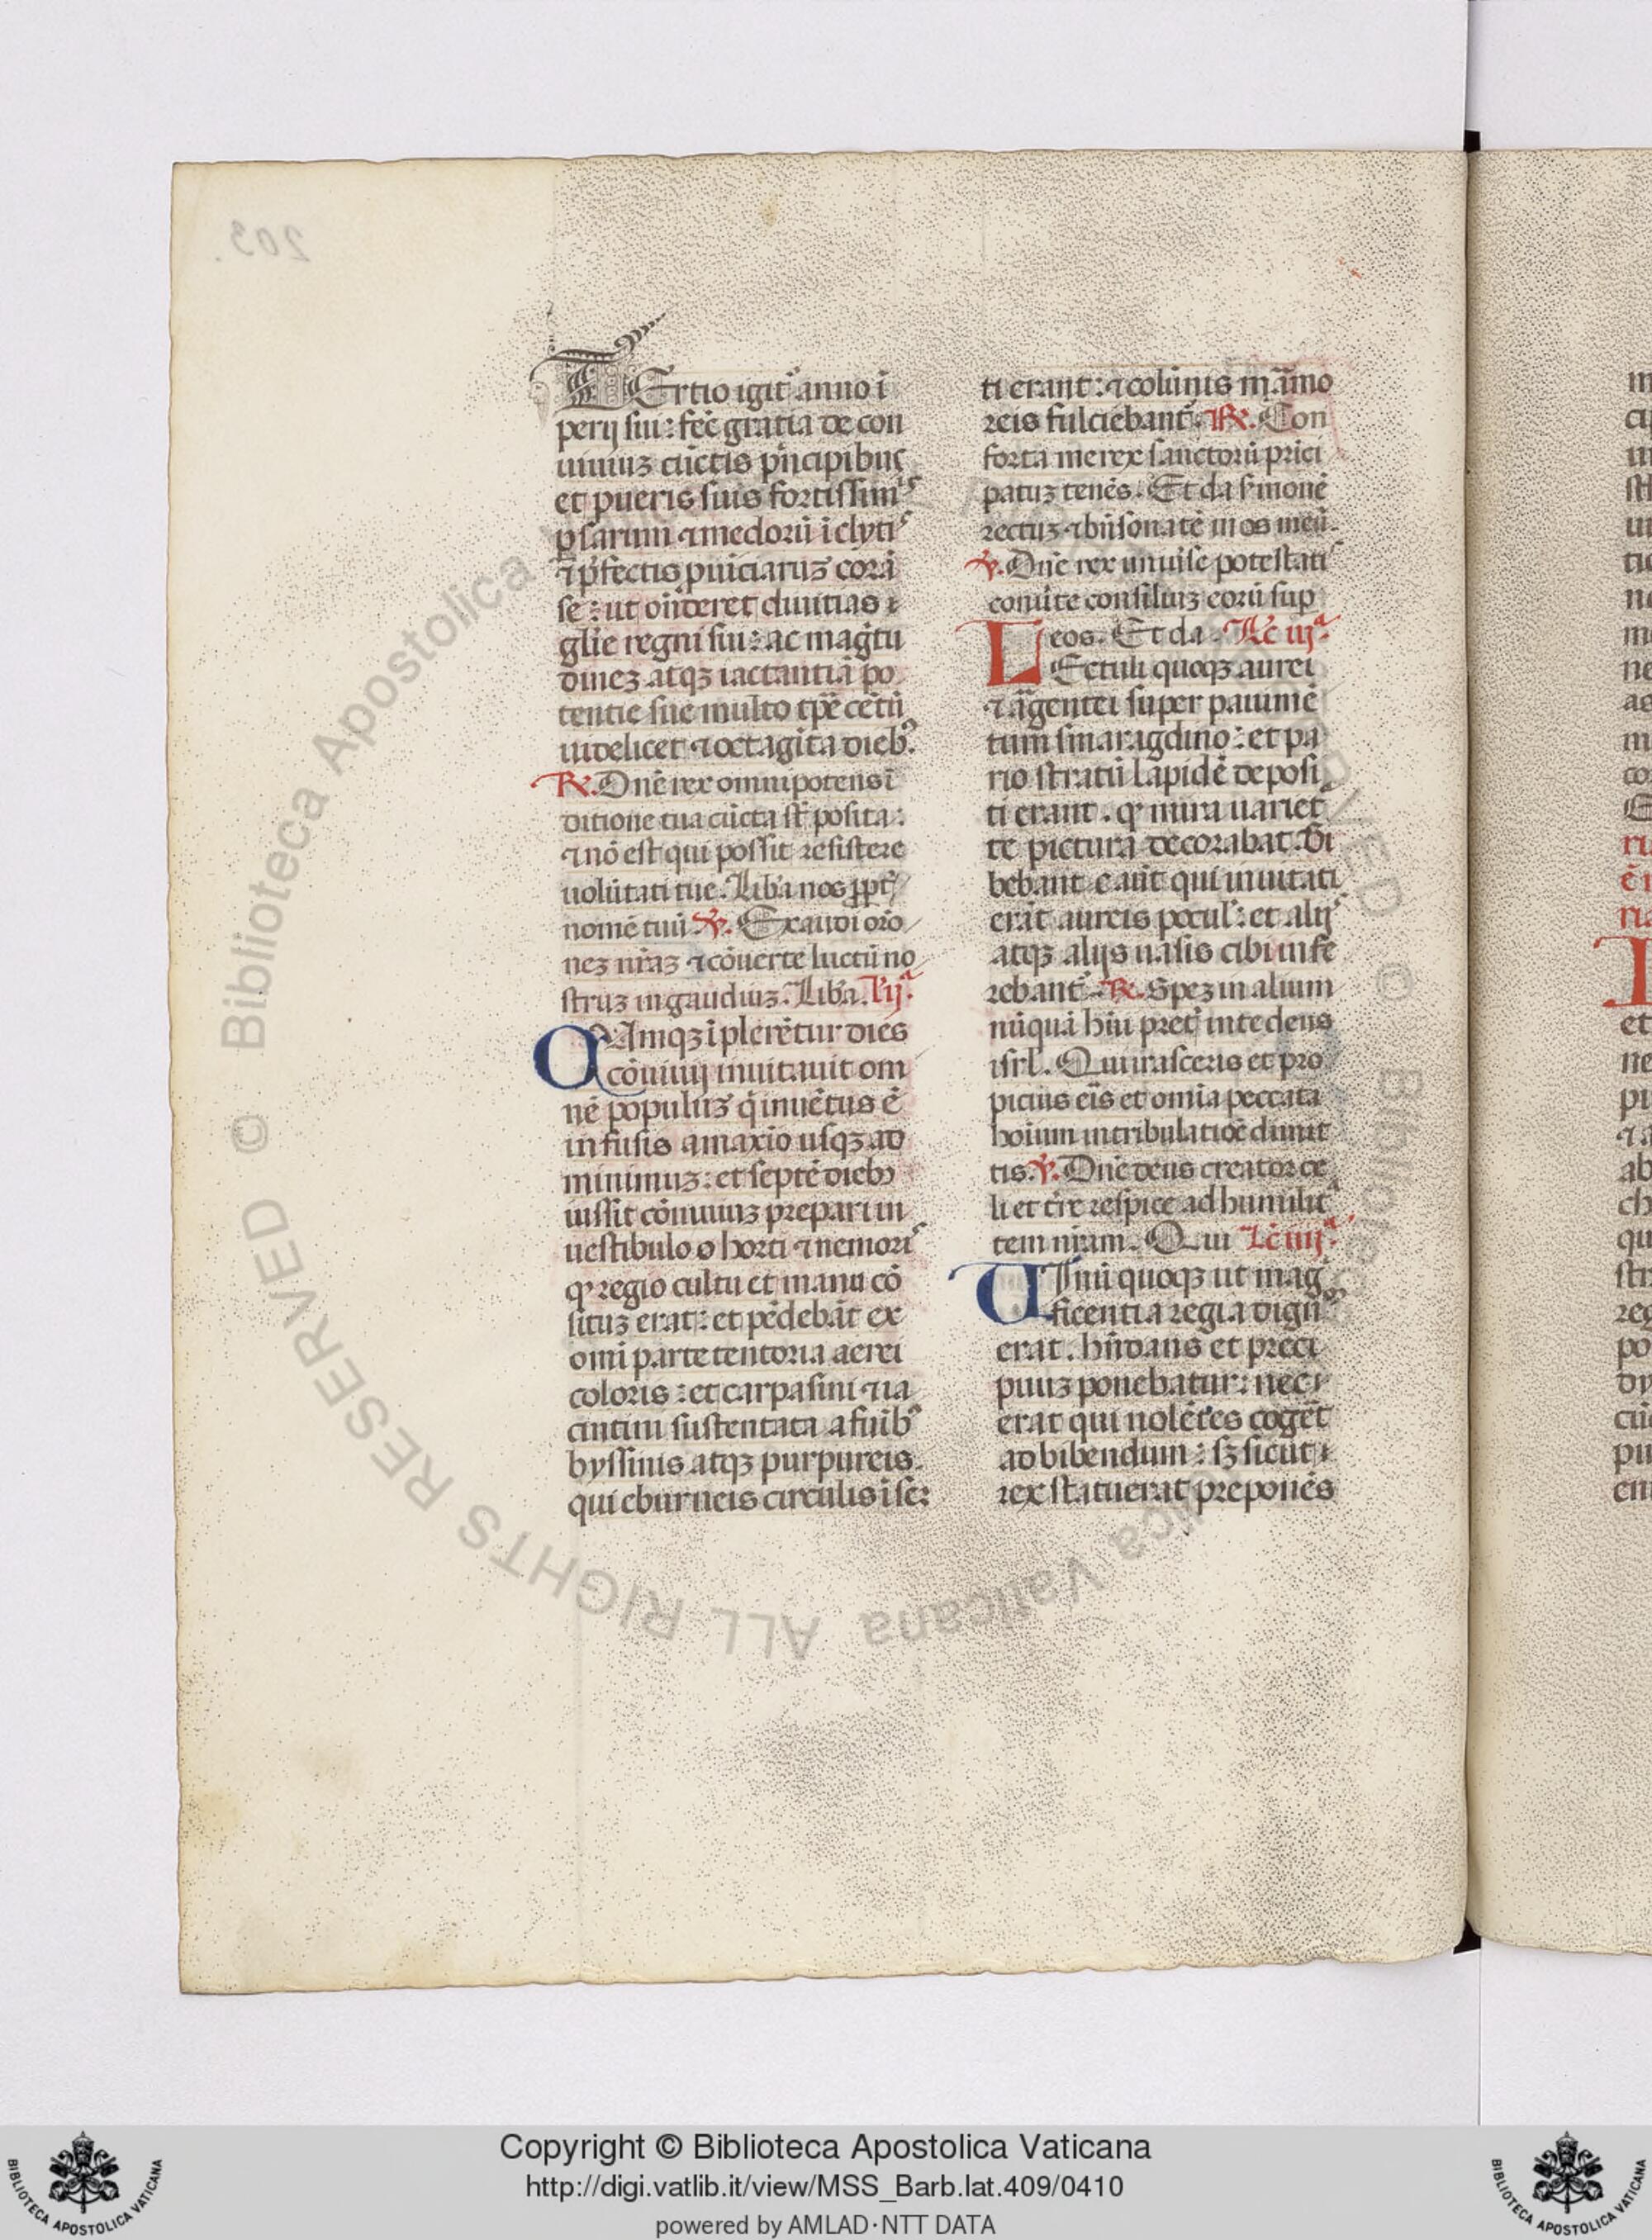 TErtio igit᷑ anno ī
perij sui: fēc gratia de con
uiuiuꝫ cūctis p̄ncipibus
et pueris suis fortissimis
ꝑsarum ⁊ medorū īclytis
⁊ p̄fectis puīciaruꝫ corā
se: ut oñderet diuitias
glīe regni sui: ac mag̅tu
dineꝫ atqꝫ iactantiā po
tentie sue multo tp̄e cētū
uidelicet ⁊ octagīta dieb᷒.
℟. Dn̄e rex omnipotens ī
ditione tua cūcta sūt posita:
⁊ nō est qui possit resistere
uolūtati tue. Lib̄a nos ꝓpt᷑
nomē tuū ℣. Exaudi oro
neꝫ nr̄aꝫ ⁊ cōuerte luctū no
struꝫ in gaudiuꝫ. Lib̄a. l' ijᵃ.
CAmqꝫ īplerētur dies
cōuiuij inuitauit om
nē populuꝫ q̄ inuētus ē
in susis a maxio usqꝫ ad
minimuꝫ: et septē dieb᷒
iussit cōuiuiuꝫ preparari in
uestibulo o horti ⁊ nemoris
qꝫ regio cultu et manu cō
situꝫ erat: et pēdebāt ex
omī parte tentoria aerei
coloris: et carpasini ⁊ ia
cintini sustentata a funib᷒
byssinis atqꝫ purpureis.
qui eburneis circulis īser
ti erant: ⁊ colūnis m̄amo
reis fulciebant᷑. ℟. Con
forta me rex sanctorū prīci
patuꝫ tenēs. Et da s̄monē
rectuꝫ ⁊ bn̄sonātē in os meū.
℣. Dn̄e rex uniuīse potestatis
conuīte consiliuꝫ eorū sup
eos. Et da. Lc̄ iijᵃ.
LEctuli quoqꝫ aurei
⁊ āgentei super pauimē
tum smaragdino: et pa
rio stratū lapidē deposi
ti erant. qꝫ mira uarieta
te pictura decorabat. Bi
bebant eaūt qui inuitati
erāt aureis pocul': et alijs
atqꝫ alijs uasis cibi infe
rebant᷑. ℟. Speꝫ in alium
nūquā hīu pret᷑ in te deus
isrl. Qui irasceris et pro
picius eīs et omīa peccata
hoīum in tribulatioē dimit
tis. ℣. Dn̄e deus creator ce
li et tr̄e respice ad humilita
tem nr̄am. Qui Lc̄ iiijᵃ.
UInū quoqꝫ ut mag
ficentia regia dignū
erat. hn̄dans et preci
puuꝫ ponebatur: nec
erat qui nolētes cogēt
ad bibendum: sꝫ sicut
rex statuerat preponēs
203.
Copyright © Biblioteca Apostolica Vaticana
http://digi.vatlib.it/view/MSS_Barb.lat.409/0410
powered by AMLAD·NTT DATA